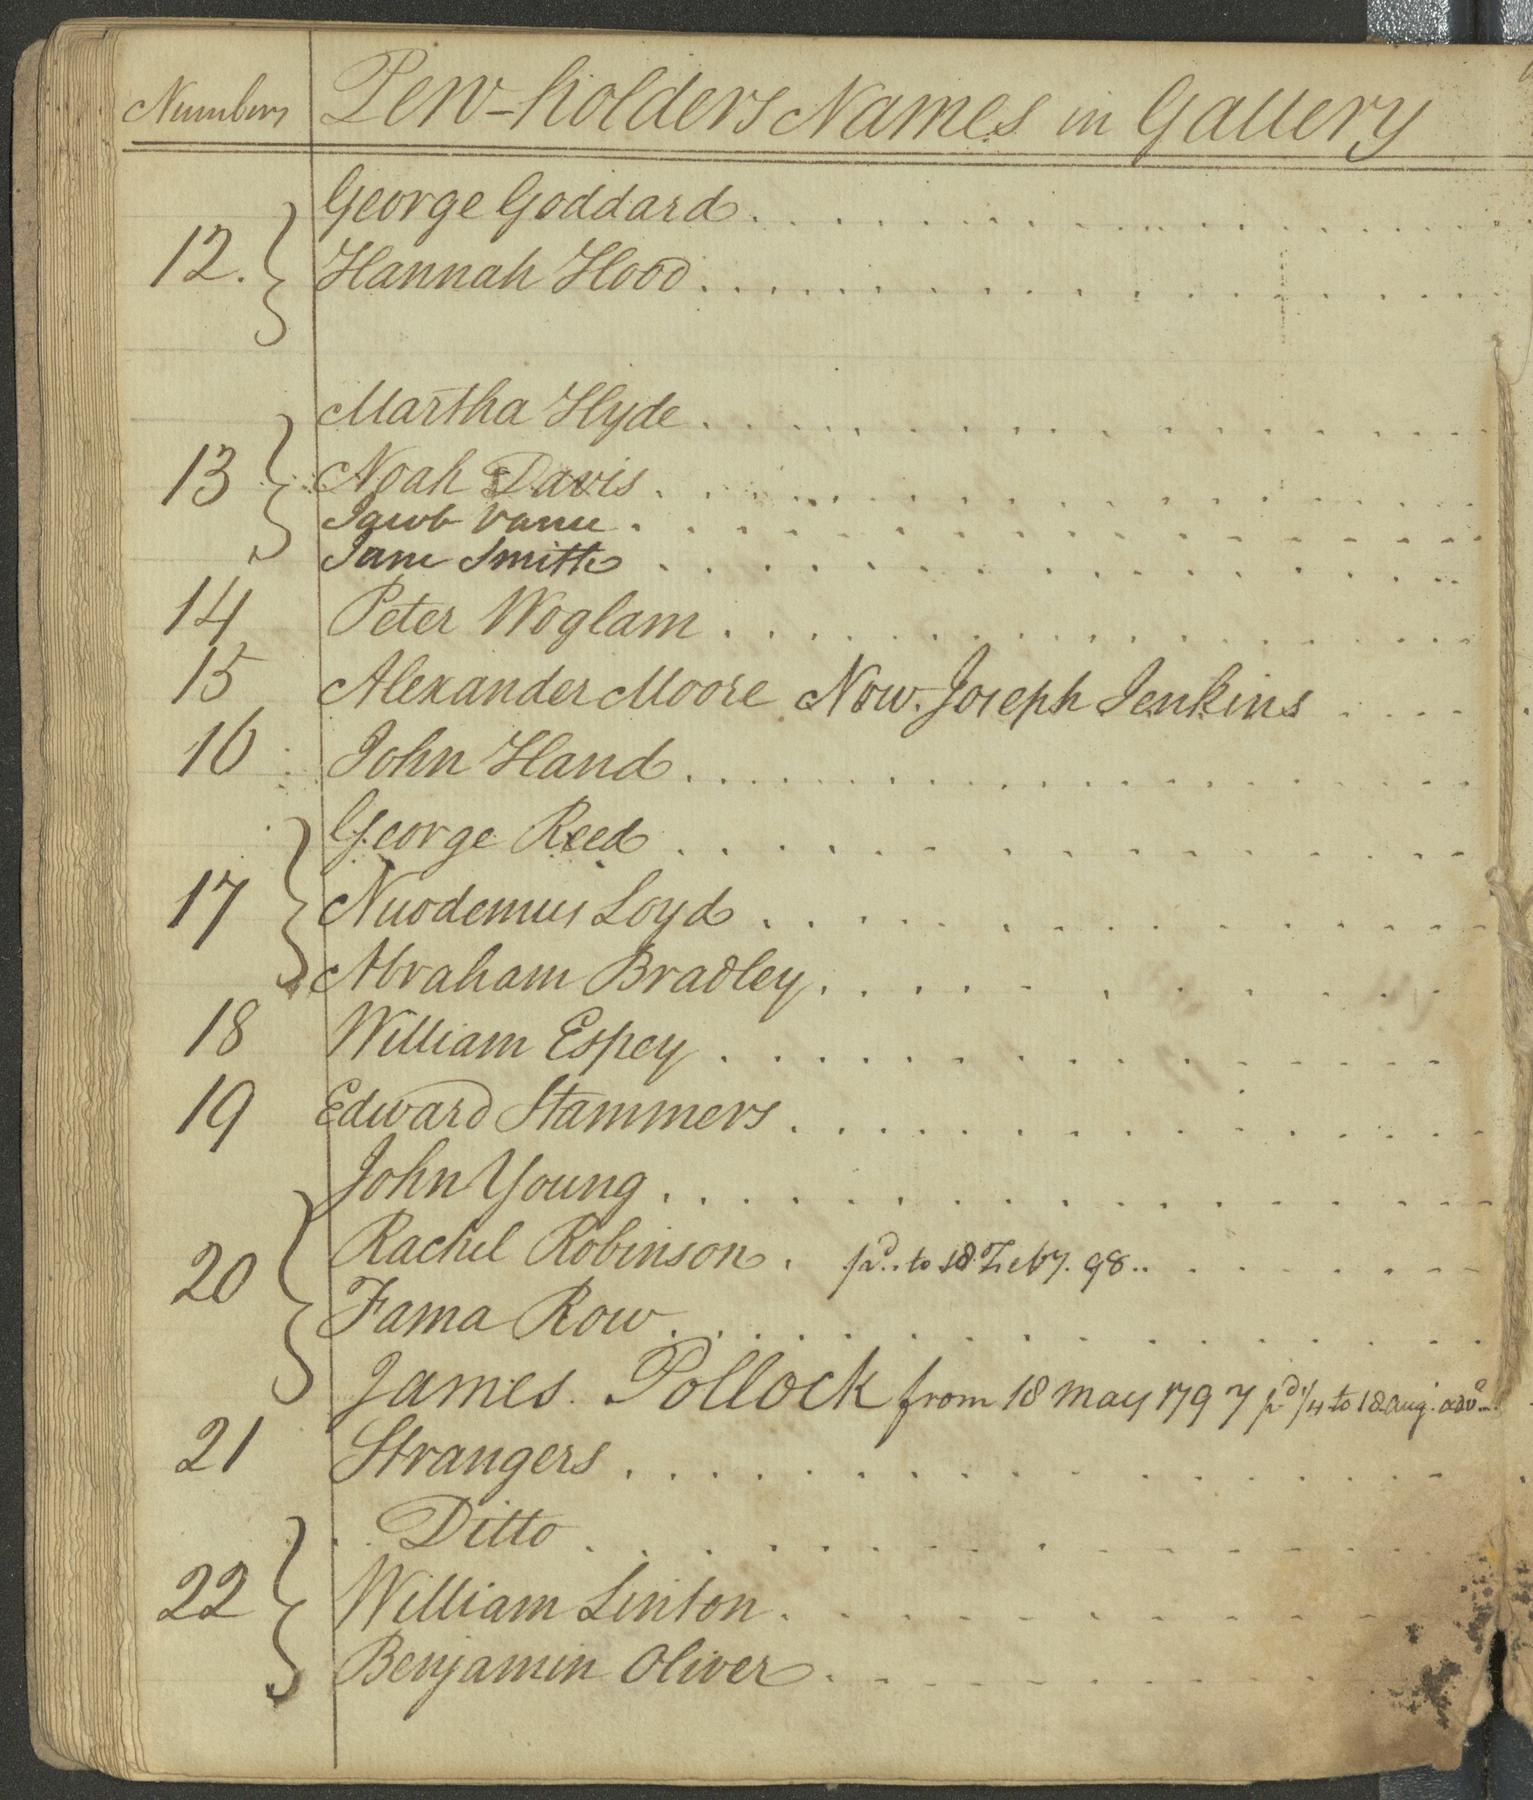 Numbers Pew-holders Names in Gallery
George Goddard
12. Hannah Hood
Martha Hyde
13 Noah Davis
Jacob Vance
Jane Smith
14 Peter Woglam
15 Alexander Moore Now Joseph Jenkins
16 John Hand
George Reed
17 Nicodemus Loyd
Abraham Bradley
18 William Espey
19 Edward Stammers
John Young
20 Rachel Robinson. pd. to 18 Feby. 98
Fama Row
James Pollock from 18 May 1797 pd 1/4 to 18 Aug.
21 Strangers
Ditto
22 William Linton
Benjamin Oliver